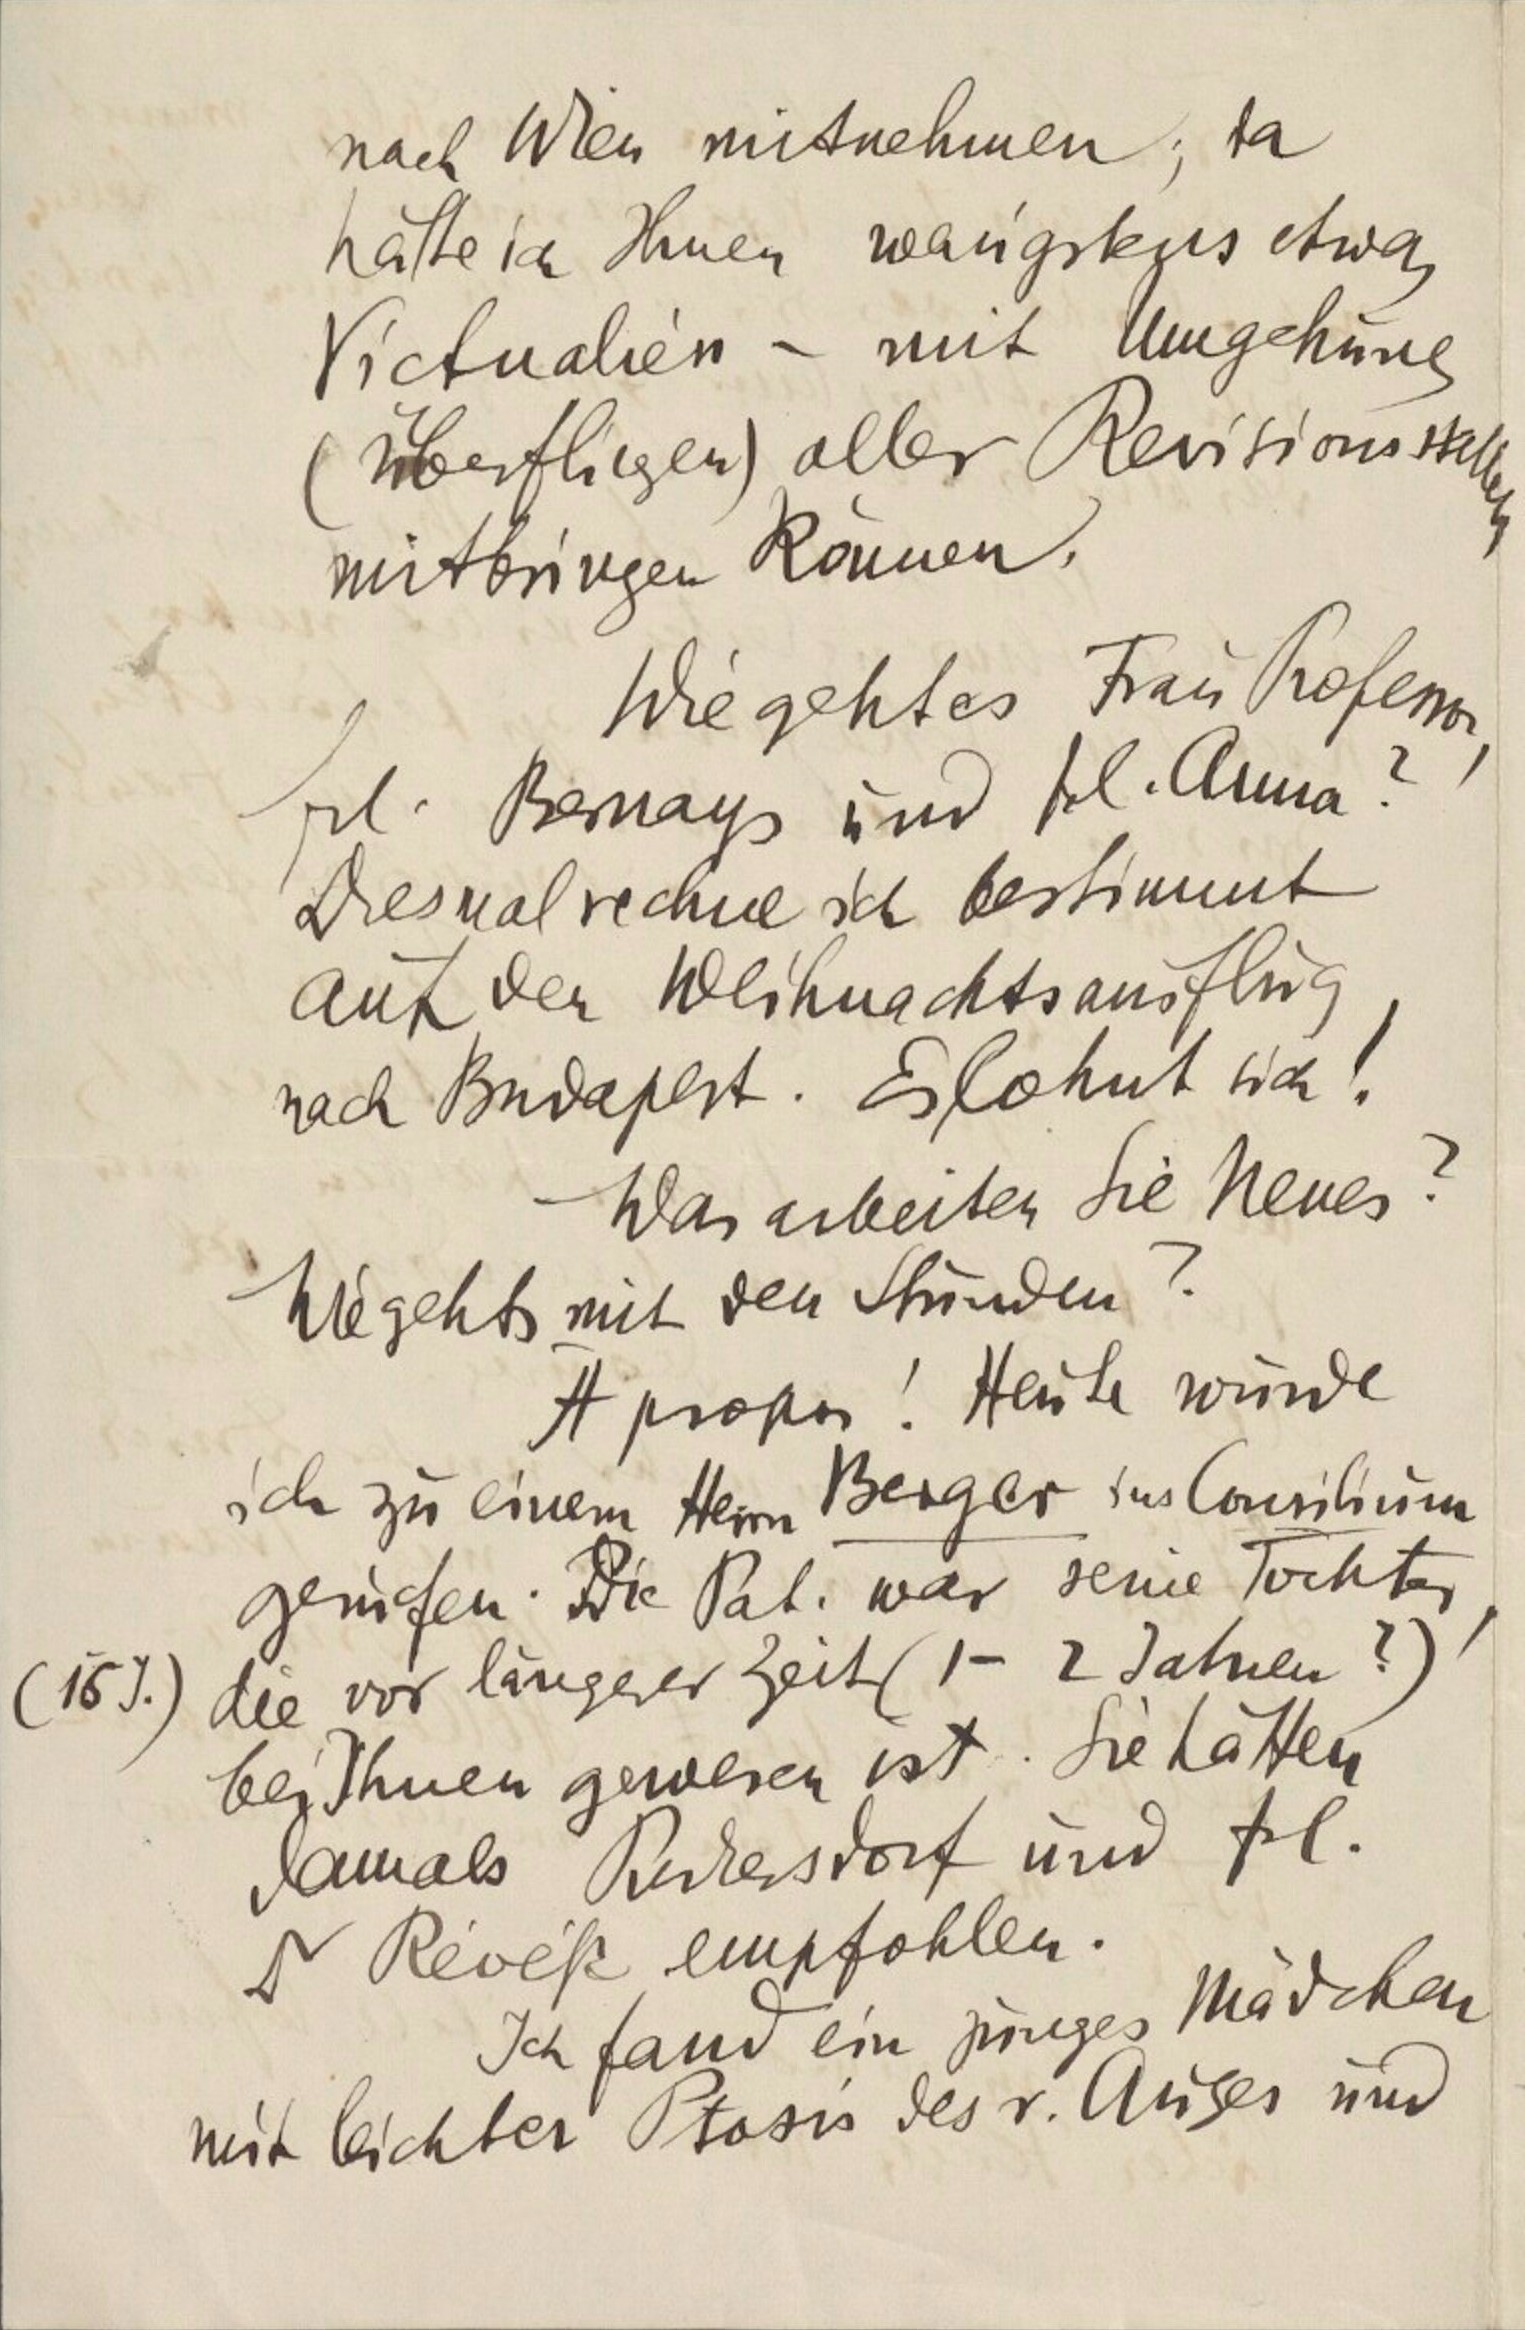 nach Wien mitnehmen; da
hätte ich Ihnen wenigstens etwas
Victualien – mit Umgehung
(überfliegen) aller Revisionsstellen
mitbringen können.
Wie geht es Frau Professor,
Frl. Bernays und Frl. Anna?
Diesmal rechne ich bestimmt
auf den Weihnachtsausflug
nach Budapest. Es lohnt sich!
Was arbeiten Sie Neues?
Wie gehts mit den Stunden?
A propos! Heute wurde
ich zu einem Herrn Berger ins Consilium
gerufen. Die Pat. war seine Tochter,
(16 J.) die vor längerer Zeit (1– 2 Jahren?)
bei Ihnen gewesen ist. Sie hätten
damals Purkersdorf und Frl.
Révész empfohlen.
Ich fand ein junges Mädchen
mit leichter Ptosis des r. Auges und